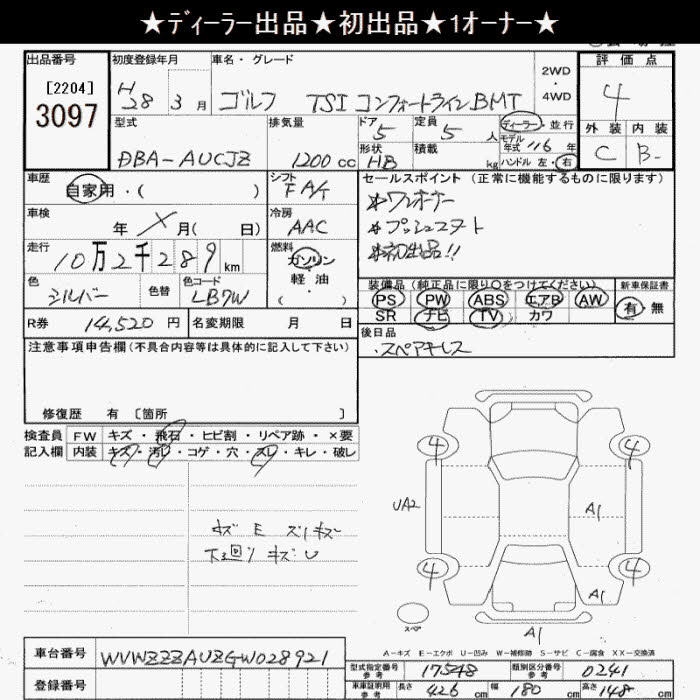 ★ディーラー出品★初出品★1オーナー★
出品番号 初度登録年月 車名・グレード 2WD・4WD 評価点
[2204] 3097
H28 3月 ゴルフ TSI コンフォートライン BMT 4
型式 排気量 ドア 5 定員 5人 ディーラー・並行 外装 内装
DBA-AUCJZ 1200cc 形状 HB 積載 kg モデル年式 '16年 ハンドル 左・右 C B-
車歴 自家用・( ) シフト FAt セールスポイント (正常に機能するものに限ります)
車検 年 月( 日) 冷房 AAC *ワンオーナー
*プッシュスタート
走行 10万2千289km 燃料 ガソリン・軽油・( ) *初出品!!
色 シルバー 色替 色コード LB7W
装備品 (純正品に限り○をつけてください) 新車保証書
PS PW ABS エアB AW 有・無
SR ナビ TV カワ
R券 14,520円 名変期限 月 日 後日品
・スペアキーレス
注意事項申告欄(不具合内容等は具体的に記入して下さい)
修復歴 有 〔箇所 〕
検査員記入欄 FW キズ・飛石・ヒビ割・リペア跡・×要
内装 キズ・汚レ・コゲ・穴・スレ・キレ・破レ
キズ E スリキズ
下廻り キズ・U
4 4
UA2 A1
4 4
A1
スペア A1
A-キズ E-エクボ U-凹み W-補修跡 S-サビ C-腐食 XX-交換済
車台番号 WVWZZZAUZGW028921
型式指定番号参考 17548 類別区分番号参考 0241
登録番号 車車証明用参考 長さ 426cm 幅 180cm 高さ 148cm